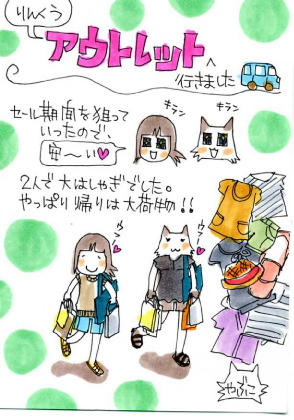 りんくう
アウトレットへ
行きました
キラン
キラン
セール期間を狙って
いったので、
安〜い♥
2人で大はしゃぎでした。
やっぱり帰りは大荷物!!
ウフー♥
ウフー♥
やぶこ